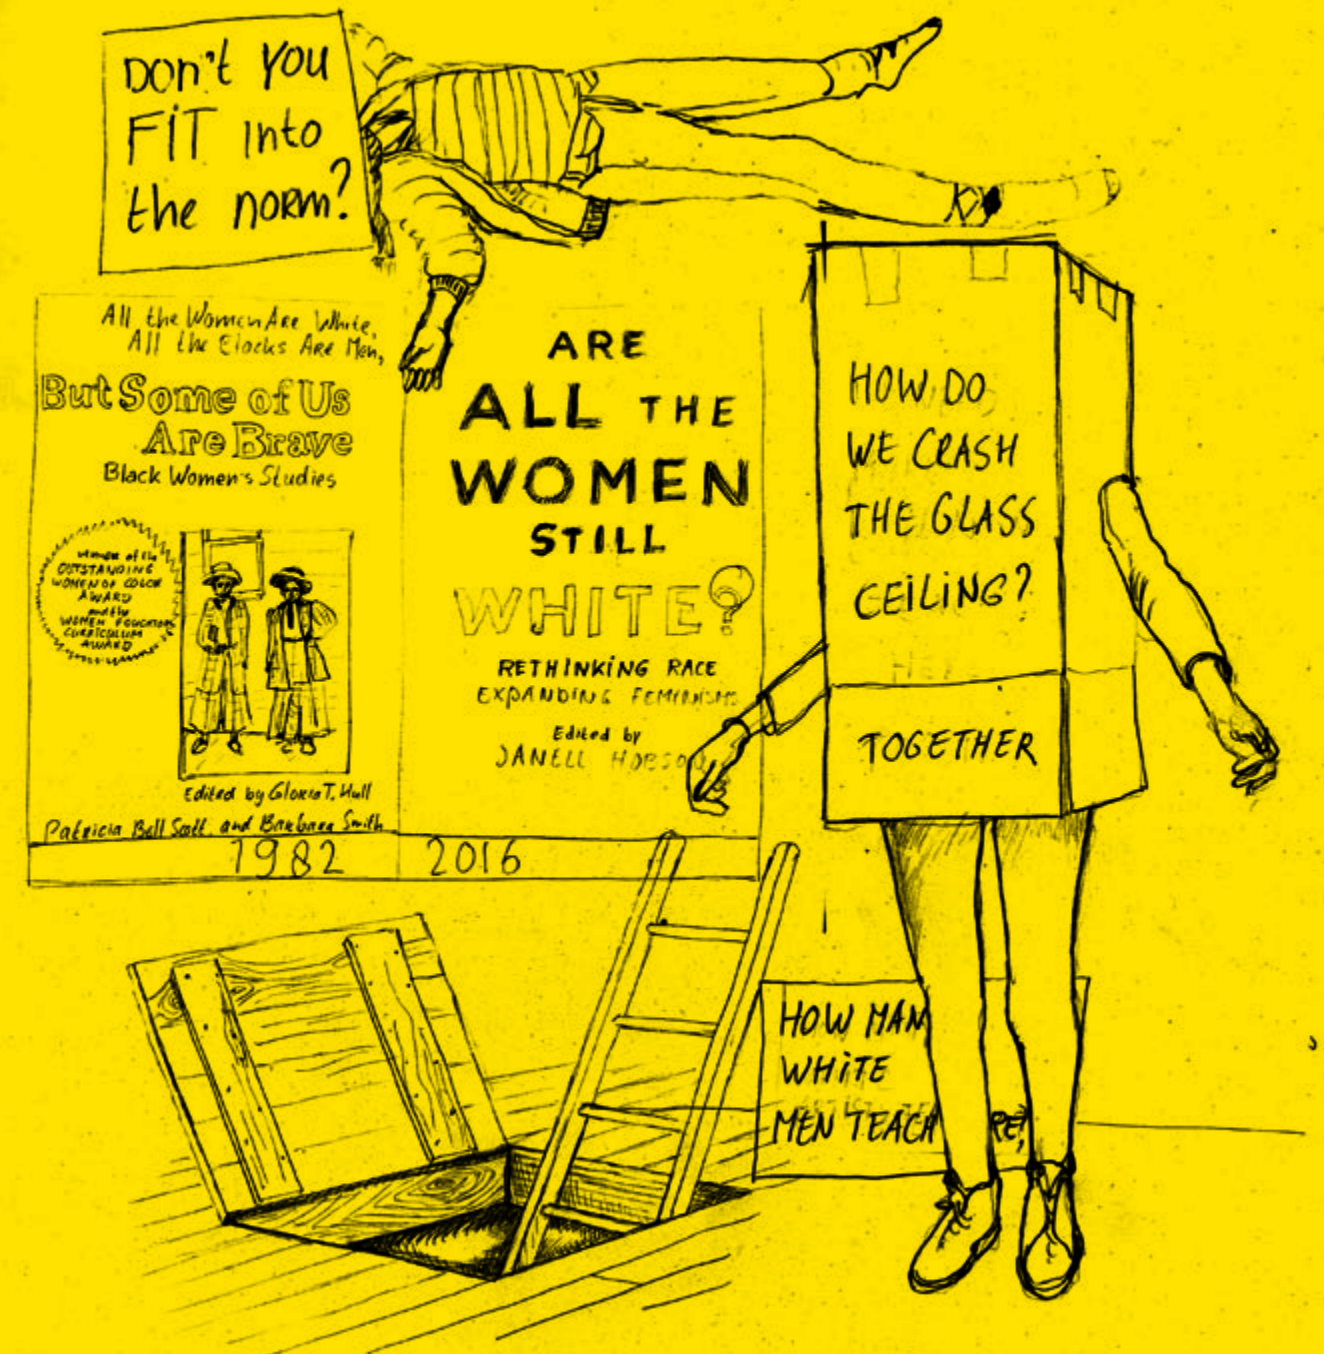 DON'T YOU
FIT into
the NORM?
All the Women Are White,
All the Blacks Are Men,
But Some of Us
Are Brave
Black Women's Studies
winner of the
OUTSTANDING
WOMEN OF COLOR
AWARD
and the
WOMEN EDUCATORS
CURRICULUM
AWARD
Edited by Gloria T. Hull
Patricia Bell Scott, and Barbara Smith
1982
ARE
ALL THE
WOMEN
STILL
WHITE?
RETHINKING RACE
EXPANDING FEMINISMS
Edited by
JANELL HOBSON
2016
HOW DO
WE CRASH
THE GLASS
CEILING?
TOGETHER
HOW MAN
WHITE
MEN TEACH RE?